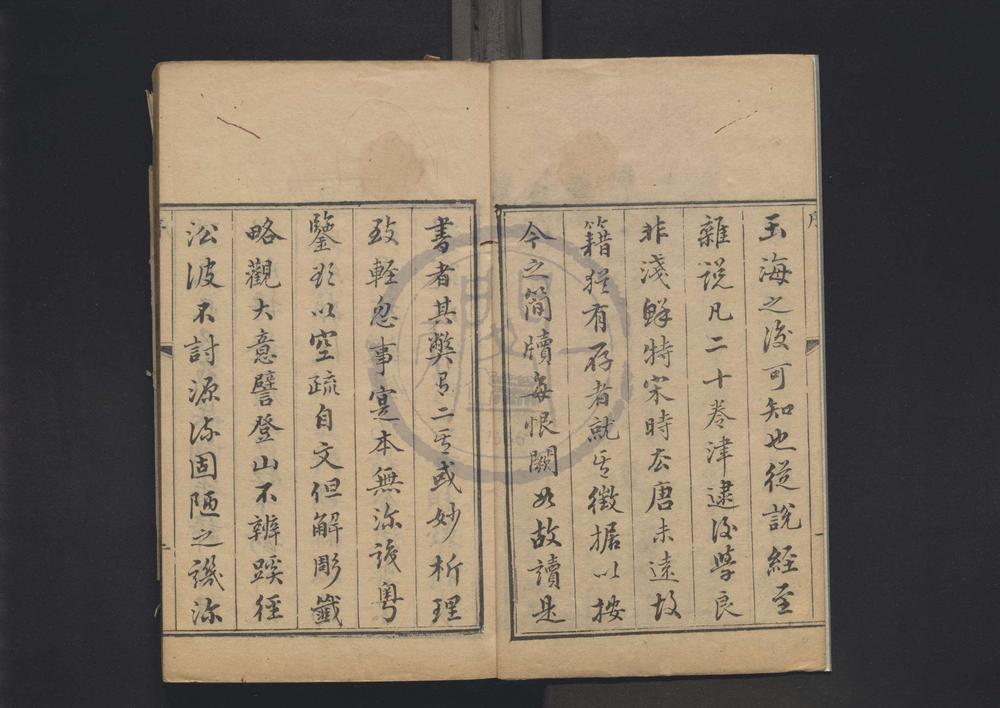 序
玉海之後可知也從說經至
雜説凡二十卷津逮後學良
非淺鮮特宋時去唐未遠故
籍猶有存者就其徵據以按
今之簡牘每恨闕如故讀是
書者其弊有二其或妙析理
致輕忽事寔本無深識奧
鑒欲以空疏自文但解彫籤
略觀大意譬登山不辨蹊徑
㳂波不討源流固陋之譏深